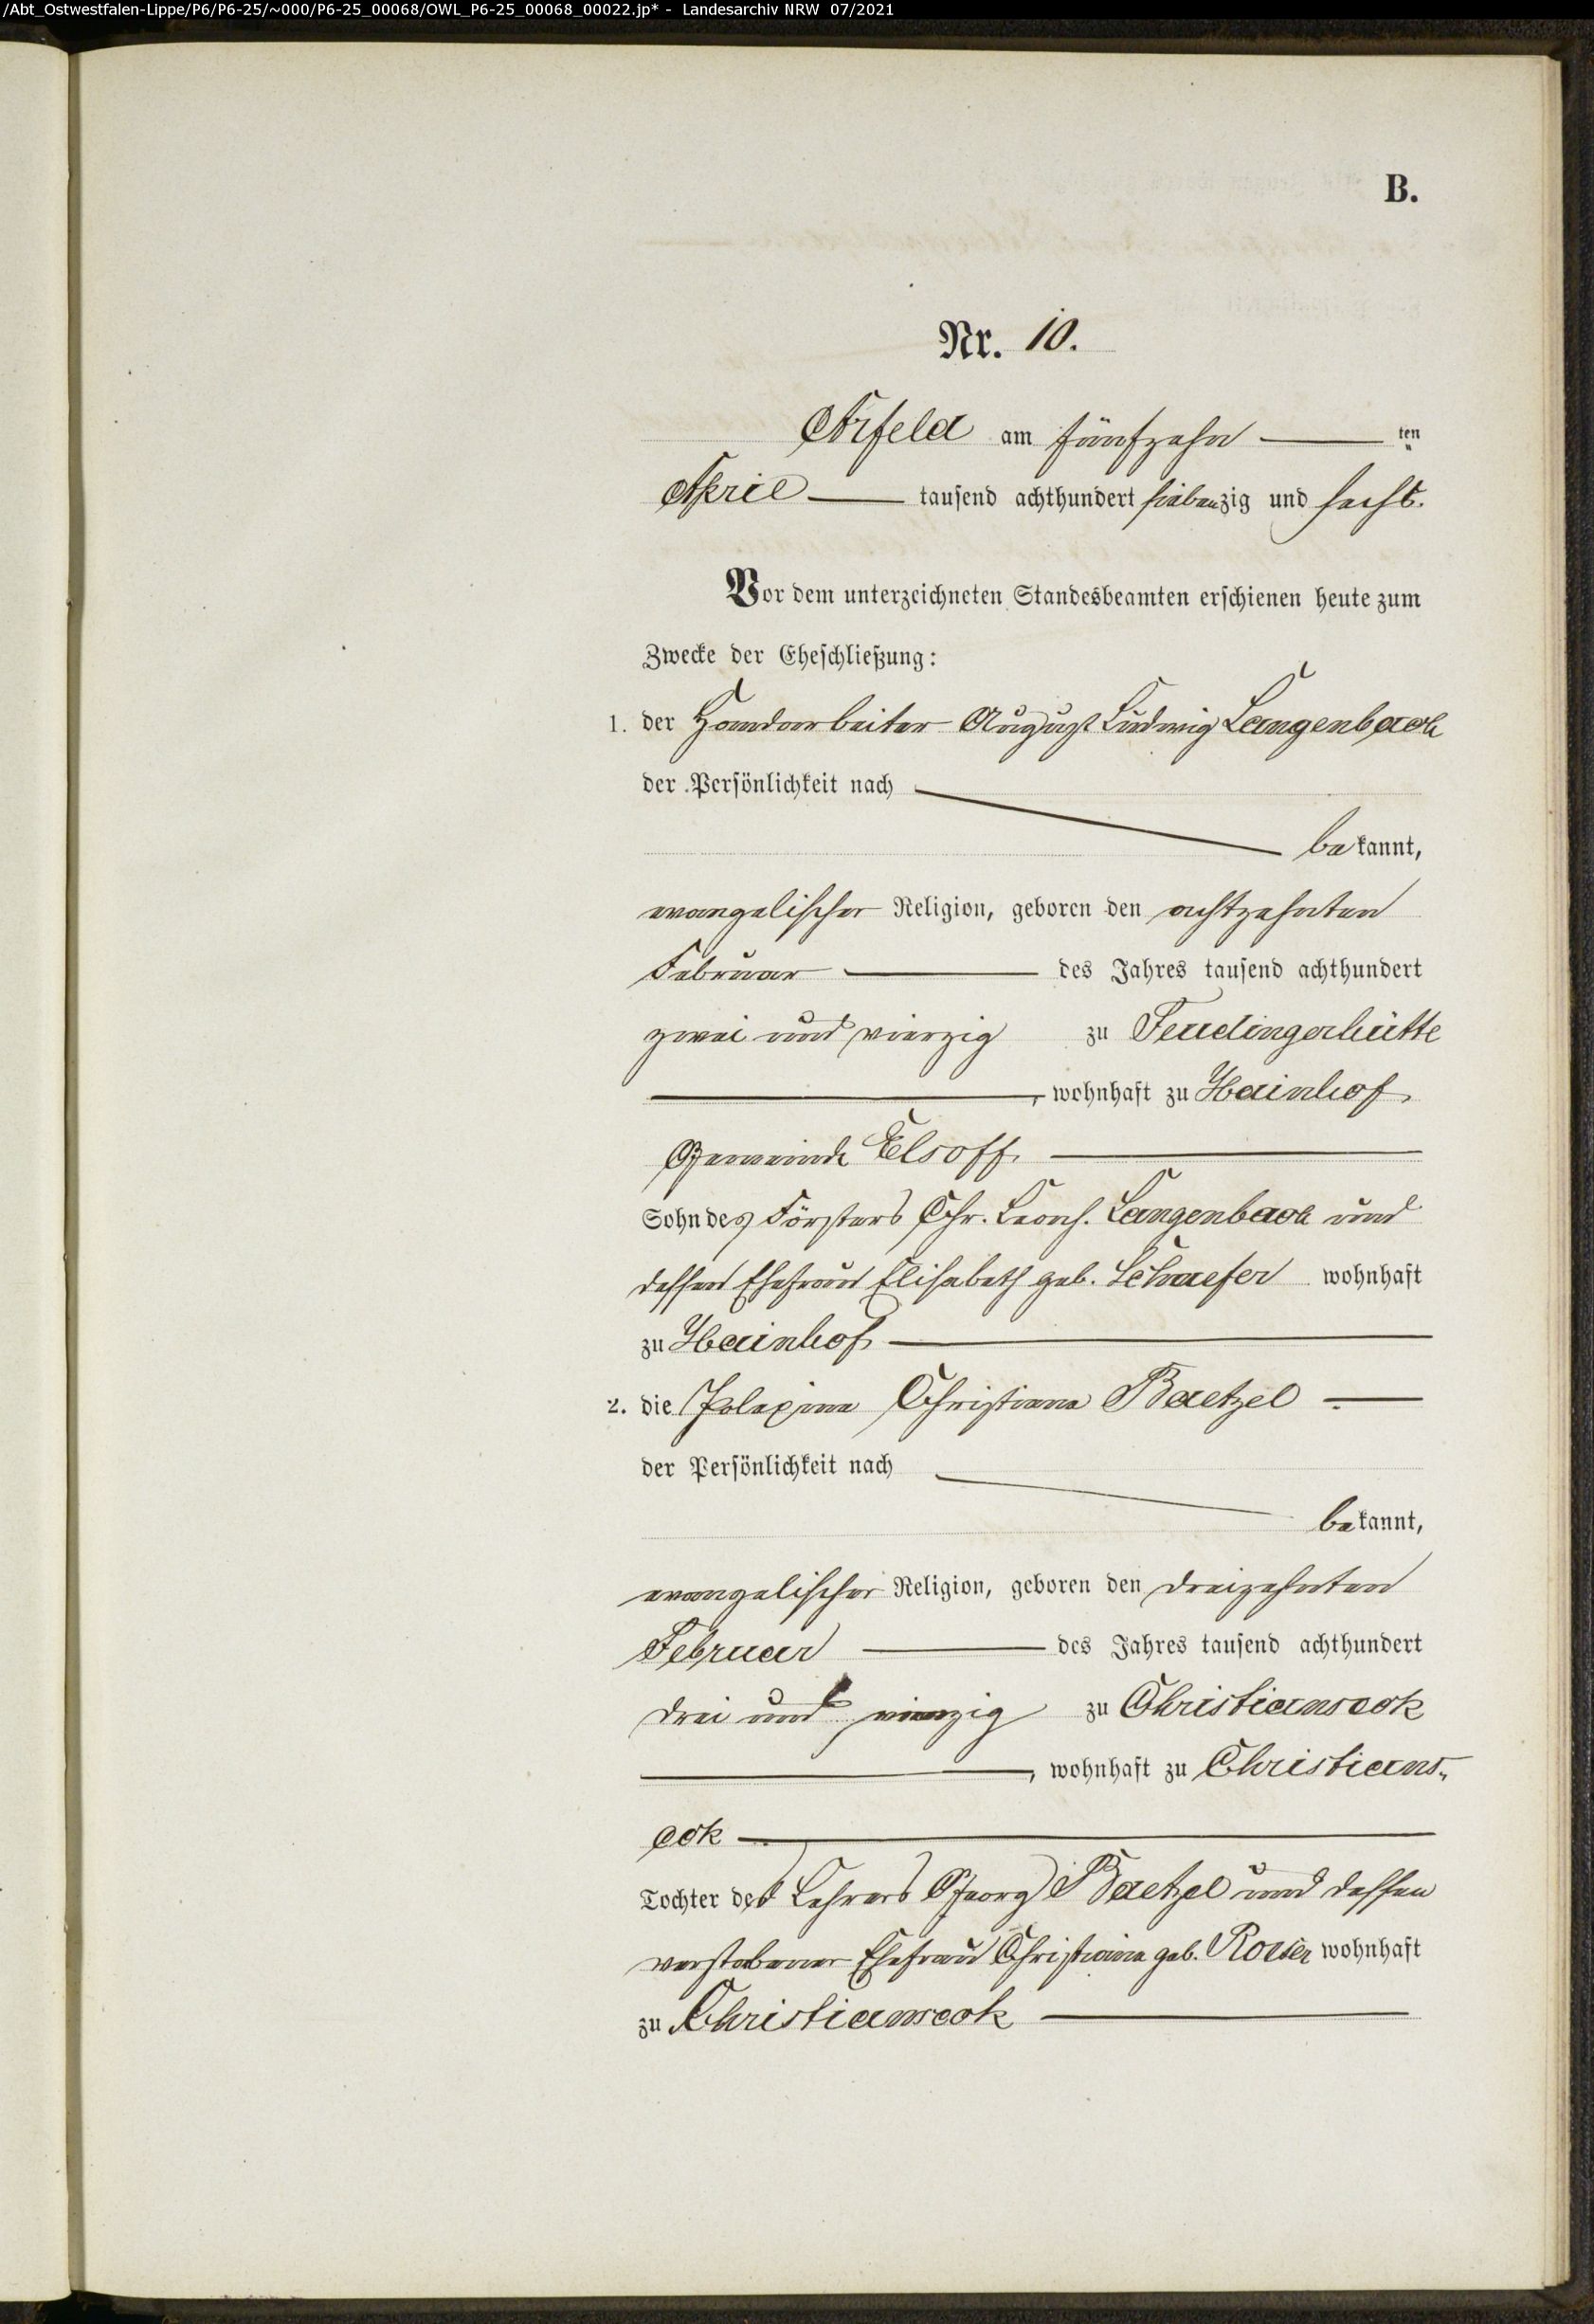 /Abt_Ostwestfalen-Lippe/P6/P6-25/~000/P6-25_00068/OWL_P6-25_00068_00022.jp* - Landesarchiv NRW 07/2021
B.
Nr. 10.
Arfeld am fünfzehn ten
April tausend achthundert siebenzig und sechs.
Vor dem unterzeichneten Standesbeamten erschienen heute zum
Zwecke der Eheschließung:
1. der Handarbeiter August Ludwig Langenbach
der Persönlichkeit nach
bekannt,
evangelischer Religion, geboren den achtzehnten
Februar des Jahres tausend achthundert
zwei und vierzig zu Feudingerhütte
, wohnhaft zu Hainhof,
Gemeinde Elsoff.
Sohn des Försters Chr. Leonh. Langenbach und
dessen Ehefrau Elisabeth geb. Schaefer wohnhaft
zu Hainhof
2. die Polexina Christiana Baetzel
der Persönlichkeit nach
bekannt,
evangelischer Religion, geboren den dreizehnten
Februar des Jahres tausend achthundert
drei und vierzig zu Christianseck
, wohnhaft zu Christians-
eck
Tochter des Lehrers Georg Baetzel und dessen
verstorbener Ehefrau Christiana geb. wohnhaft
zu Christianseck